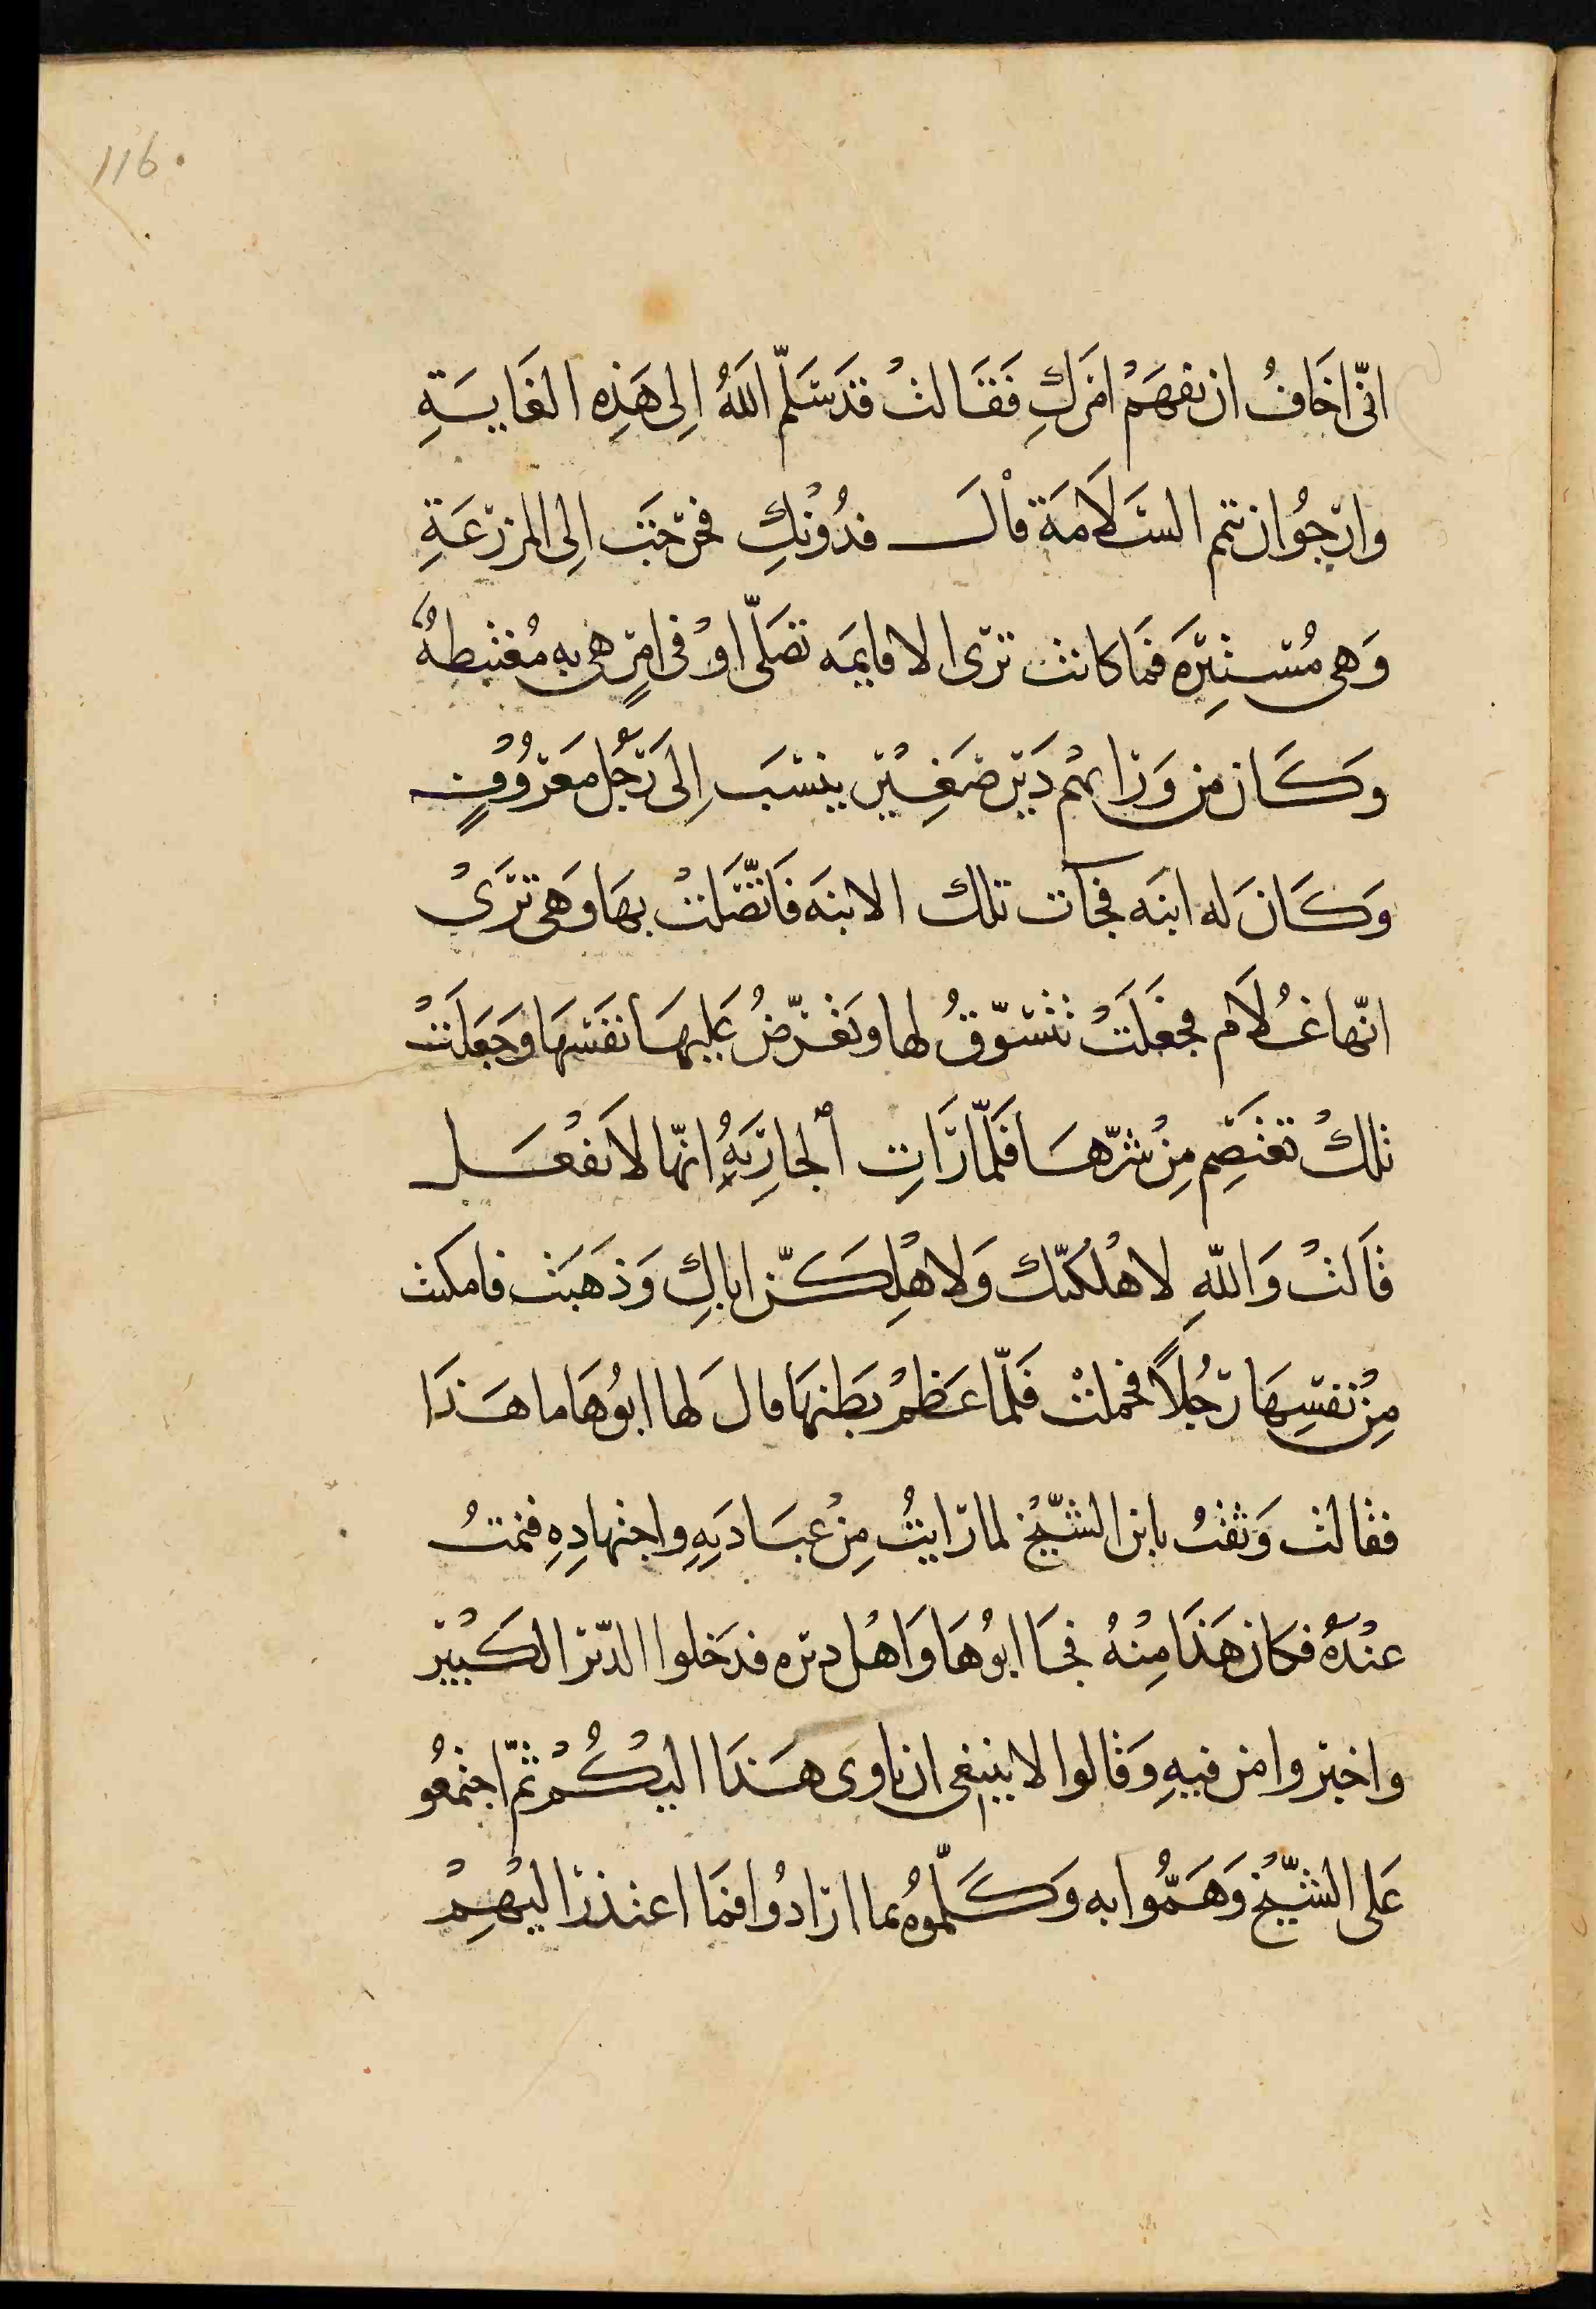 116.
انّى اخَافُ ان يفهَمْ امْرَكِ فَقَالتْ قَدْ سَلَّم اللهُ اِلى هَذِهِ الغَايَةِ
وارْجُوا ان تتم السَلَامَة قاْلَ فدُوْنكِ فخرْجَت اِلى المزرعَةِ
وَهى مُسْتترَه فمَا كانت ترى الا قايمَه تصَلّى اوْ فى امرٍ هى به مُغتبطهٌ
وَكَان من وَرايهُم دَير صَغِيْر ينسَب اِلىَ رَجُل مَعرُوْفٍ
وَكَانَ له ابنَه فجآت تلك الابنَه فَاتّصَلتْ بهَا وَهى ترَىْ
انّها غُلَام فجعَلَتْ تتسَوّقُ لها وتَعْرّضُ عَليهَا نفَسَهَا وَجَعَلَتْ
تلكْ تعْتصِم مِنْ شرّهَا فَلمّا رَاَتِ الجَارِيَهُ انّها لا تَفْعَل
قاَلتْ وَاللهِ لاهْلكنّك وَلاهْلِكَنّ اباكِ وَذهَبَت فامكنت
مِنْ نفسِهَا رَجُلاً فحملتْ فَلمّا عَظمْ بَطنهَا قال لَها ابُوهَا ما هَذَا
فقالت وَثقتُ بابن الشّيْخ لما رَايتُ مِنْ عبَادتِهِ واجتهادِهِ فنمتُ
عنْدَهُ فكان هَذَا مِنْهُ فجَا ابُوهَا وَاهْل ديره فدَخلوا الدّير الكَبيْر
واخبروا من فيهِ وَقالوا لا ينبغى ان ياوى هَذَا اليْكُمْ ثمّ اجتمعُو
عَلى الشّيْخ وَهَمُّوا به وَكَلّمُوهُ بما ارَادُوا فمَا اعتذرَ اليْهِمْ